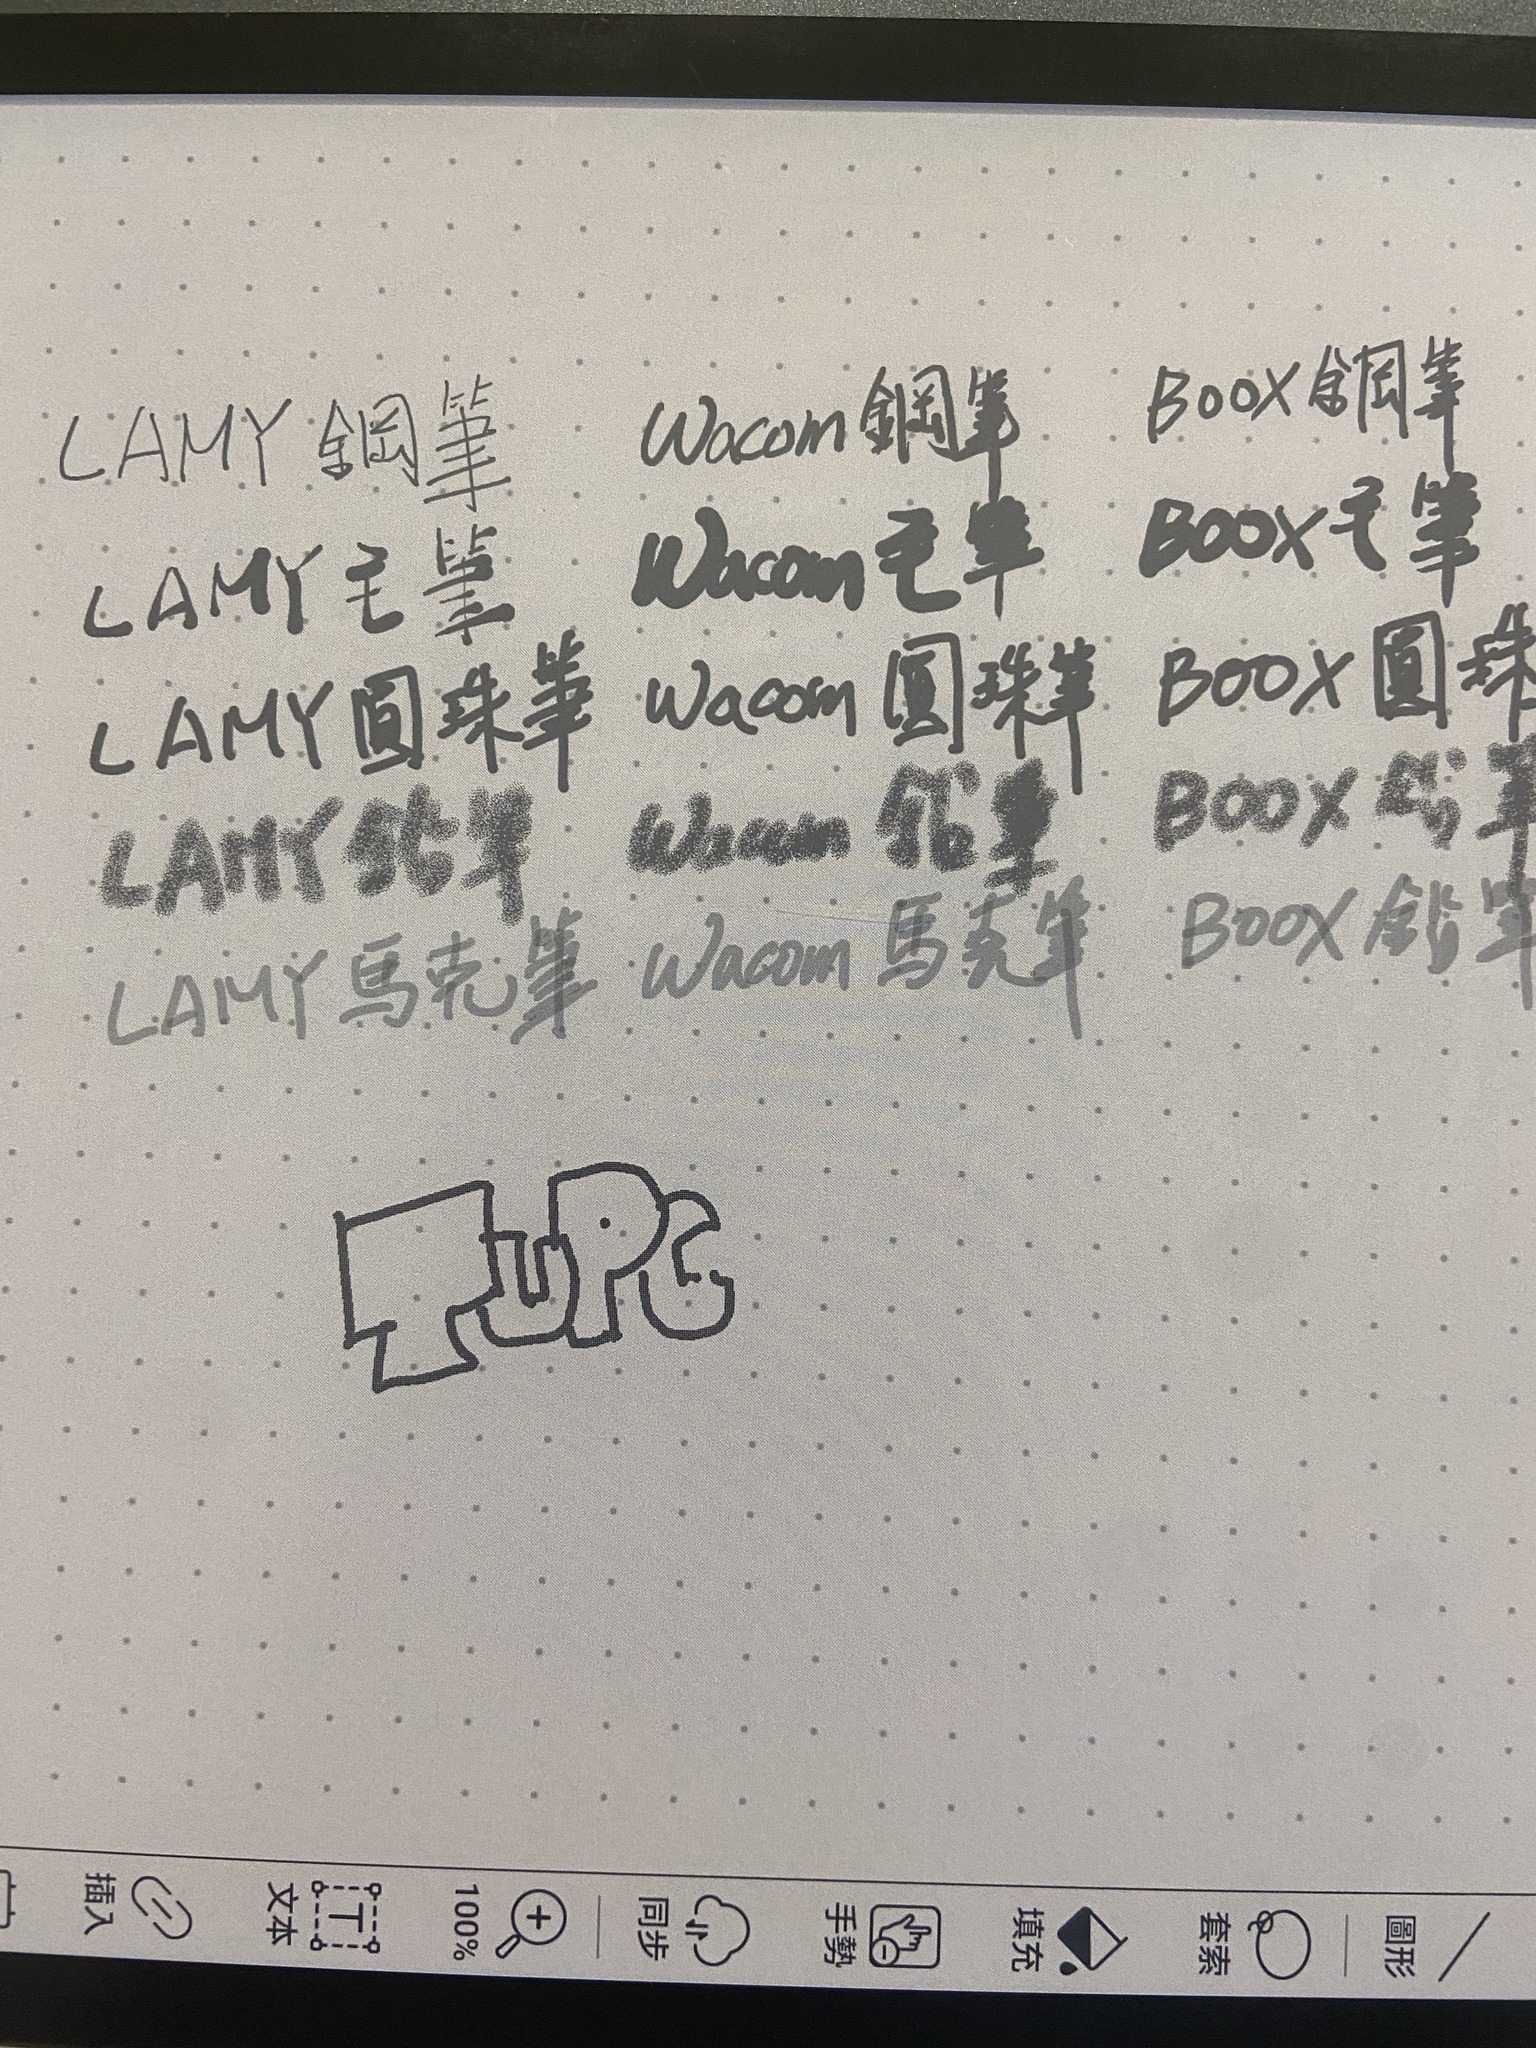 LAMY 鋼筆 Wacom 鋼筆 BOOX 鋼筆
LAMY 毛筆 Wacom 毛筆 BOOX 毛筆
LAMY 圓珠筆 Wacom 圓珠筆 BOOX 圓珠
LAMY 鉛筆 Wacom 鉛筆 BOOX 鉛筆
LAMY 馬克筆 Wacom 馬克筆 BOOX 鉛筆
TUPG
插入
文本
100%
同步
手勢
填充
套索
圖形